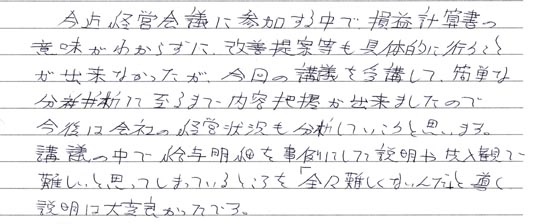 今迄経営会議に参加する中で、損益計算書の
意味がわからずに、改善提案等も具体的に行うこと
が出来なかったが、今回の講議を受講して、簡単な
分析に至るまで内容把握が出来ましたので
今後は会社の経営状況も分析していこうと思います。
講議の中で給与明細を事例にして説明や先入観で
難しいと思ってしまっているところを「全々難しくないんだ」と導く
説明は大変良かったです。